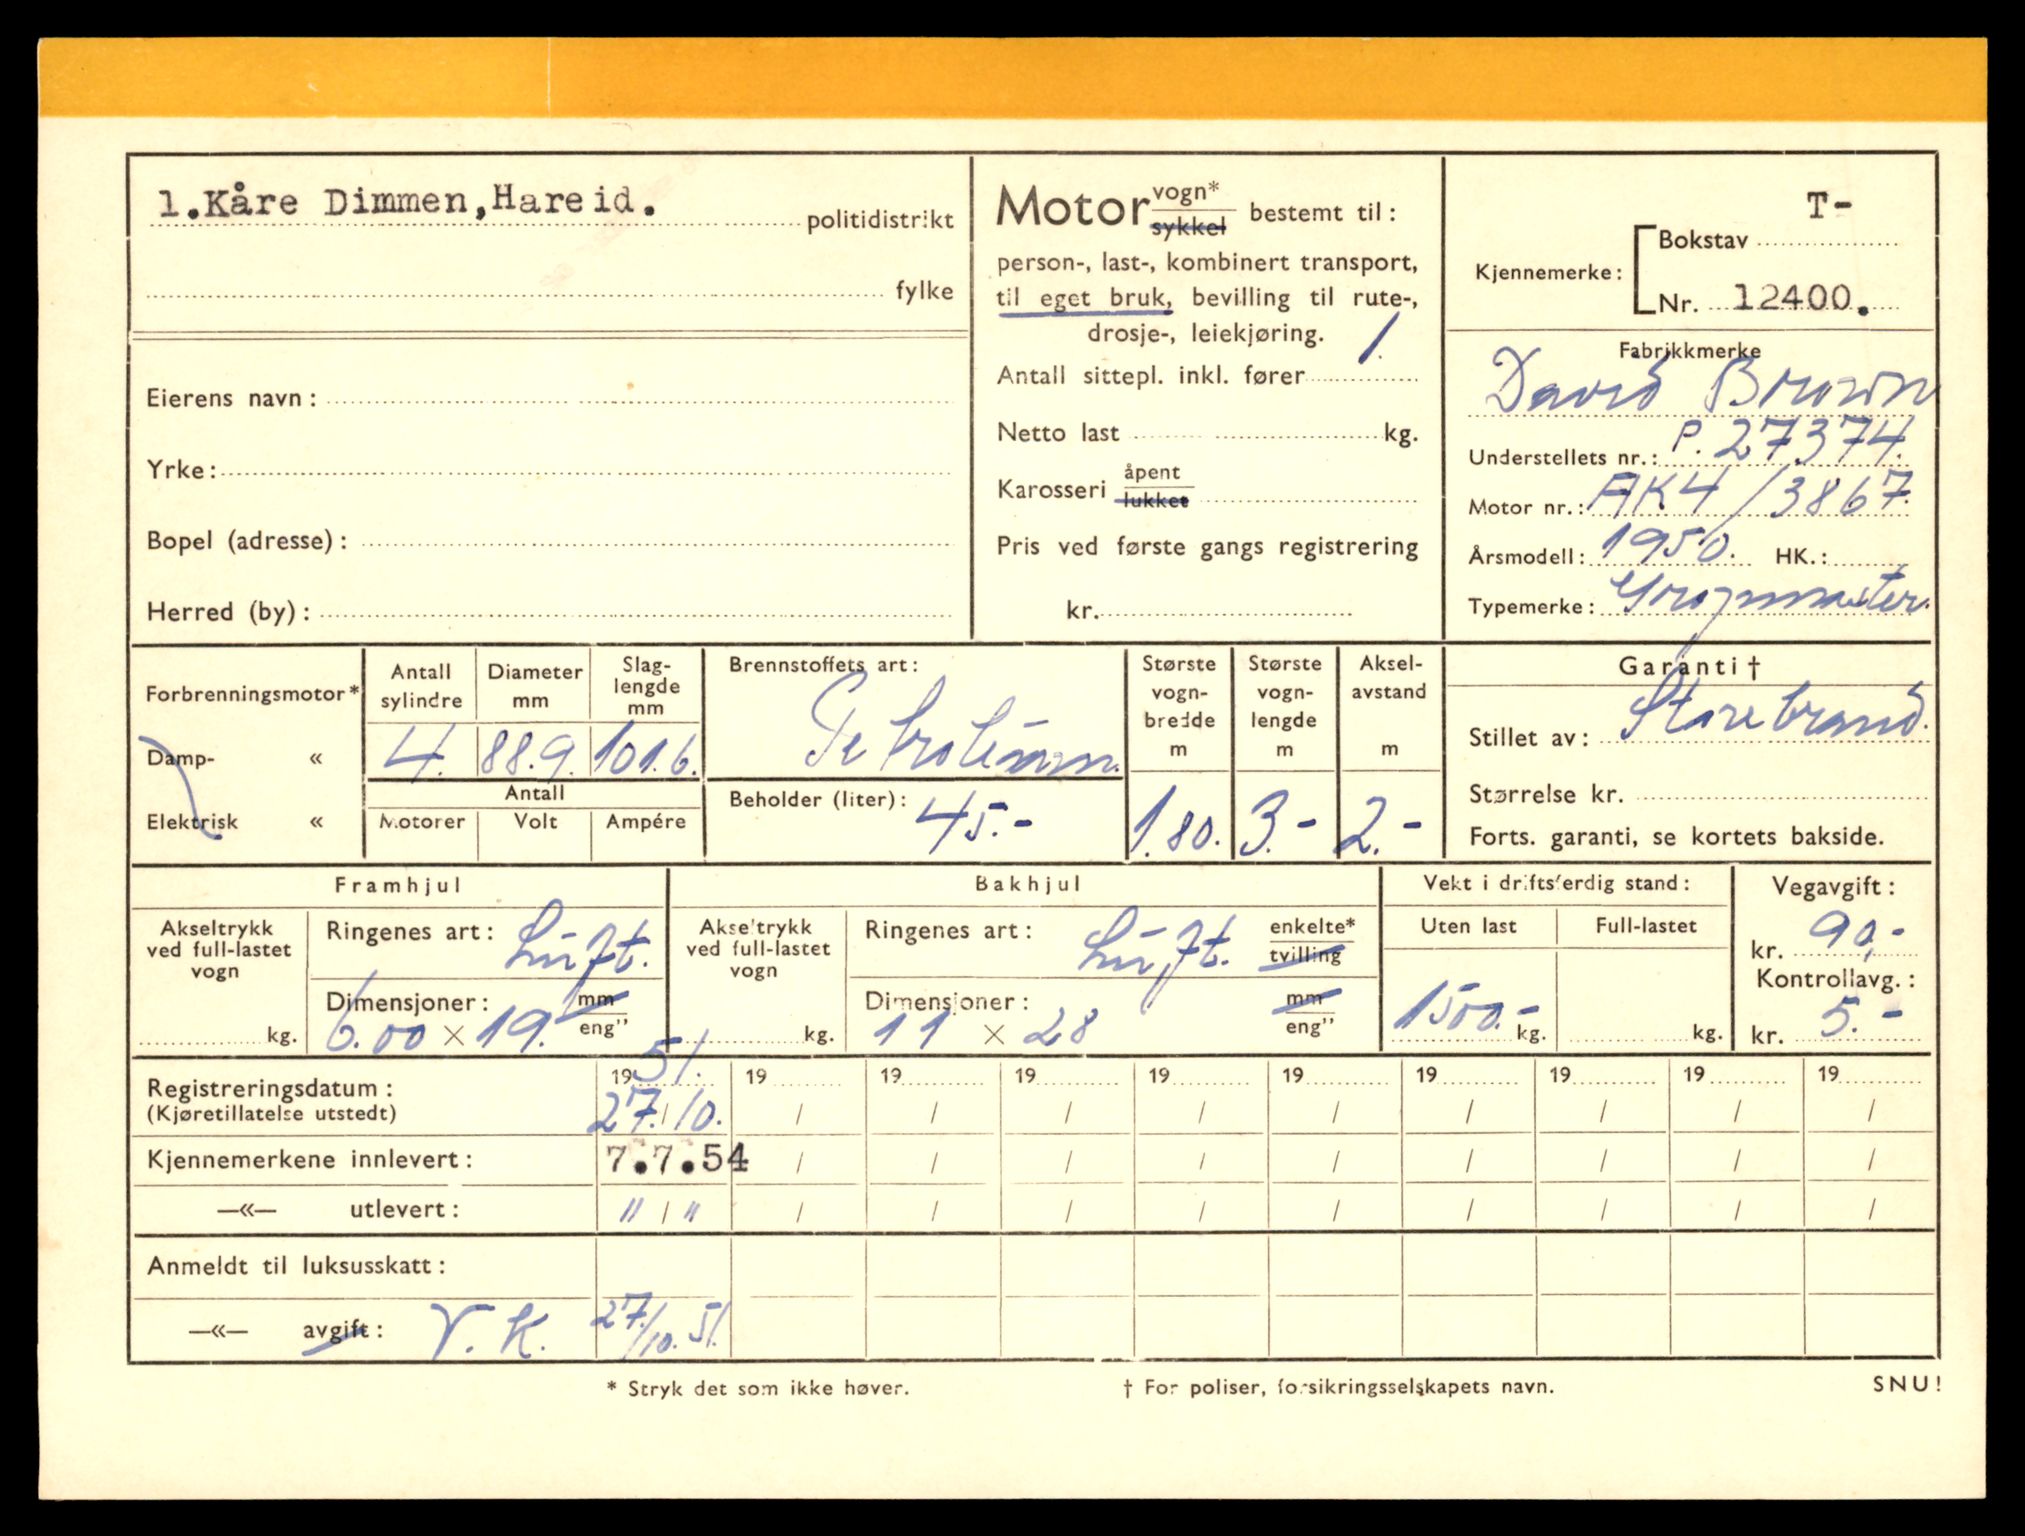 1.Kåre Dimmen,Hareid. politidistrikt
fylke
Eierens navn:
Yrke:
Bopel (adresse):
Herred (by):
Motor vogn* sykkel bestemt til:
person-, last-, kombinert transport,
til eget bruk, bevilling til rute-,
drosje-, leiekjøring.
Antall sittepl. inkl. fører 1.
Netto last kg.
Karosseri åpent lukket
Pris ved første gangs registrering
kr.
T-
Bokstav
Kjennemerke:
Nr. 12400.
Fabrikkmerke
David Brown
Understellets nr.: P. 27374.
Motor nr.: AK4/3867.
Årsmodell: 1950. HK.:
Typemerke:
Forbrenningsmotor*
Damp- «
Elektrisk «
Antall sylindre Diameter mm Slag-lengde mm
4. 88.9. 101.6.
Antall
Motorer Volt Ampére
Brennstoffets art:
Petroleum.
Beholder (liter): 45.-
Største vogn-bredde m
1.80.
Største vogn-lengde m
3.-
Aksel-avstand m
2.-
Garanti †
Stillet av: Storebrand.
Størrelse kr.
Forts. garanti, se kortets bakside.
Framhjul
Akseltrykk ved full-lastet vogn
kg.
Ringenes art: Luft.
Dimensjoner: mm eng”
6.00 × 19.
Bakhjul
Akseltrykk ved full-lastet vogn
kg.
Ringenes art: Luft. enkelte* tvilling
Dimensjoner: mm eng”
11 × 28
Vekt i driftsferdig stand:
Uten last Full-lastet
1500.- kg. kg.
Vegavgift:
kr. 90,-
Kontrollavg.:
kr. 5.-
Registreringsdatum: 1951. 19 19 19 19 19 19 19 19 19
(Kjøretillatelse utstedt) 27./10. / / / / / / / / /
Kjennemerkene innlevert: 7.7.54 / / / / / / / / /
—«— utlevert: " / " / / / / / / / / /
Anmeldt til luksusskatt:
—«— avgift: V.K. 27./10. 51.
* Stryk det som ikke høver.
† For poliser, forsikringsselskapets navn.
SNU!